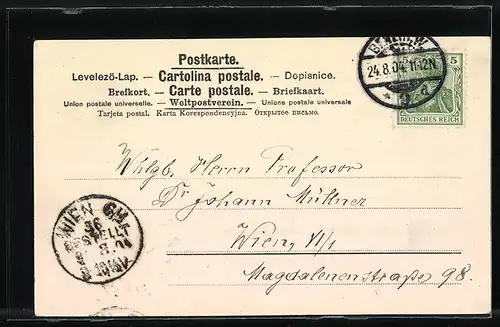 Postkarte.
Levelező-Lap. — Cartolina postale. — Dopisnice.
Brefkort. — Carte postale. — Briefkaart.
Union postale universelle. — Weltpostverein. — Unione postale universale
Tarjeta postal. Karta Korespondencyjna. Открытое письмо.
BERLIN. W.
24.8.04. 11-12N.
5
DEUTSCHES REICH
Wohlgb. Herrn Professor
Dr Johann Müllner
Wien, VI/1
Magdalenenstraße 98.
WIEN
BESTELLT